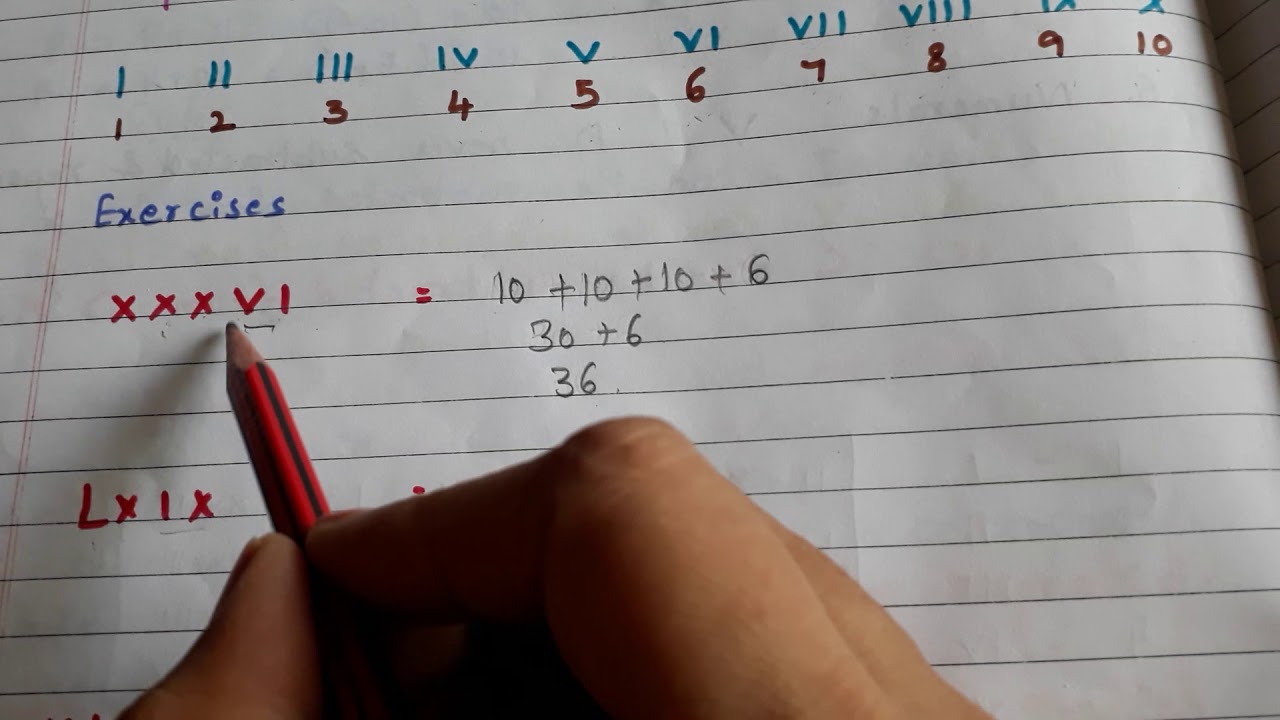 I II III IV V VI VII VIII IX X
1 2 3 4 5 6 7 8 9 10
Exercises
XXXVI = 10 + 10 + 10 + 6
30 + 6
36.
LXIX